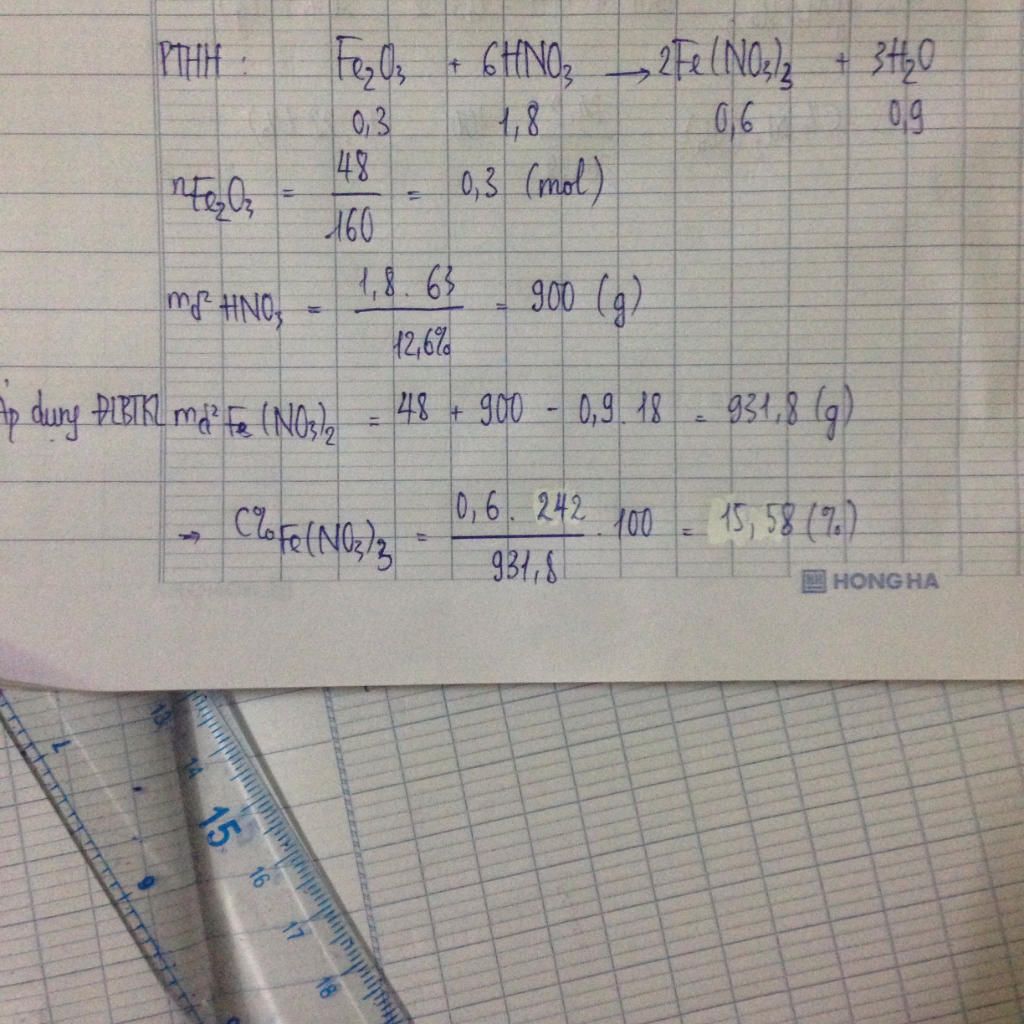 PTHH : Fe2O3 + 6HNO3 → 2Fe(NO3)3 + 3H2O
0,3 1,8 0,6 0,9
nFe2O3 = 48/160 = 0,3 (mol)
md² HNO3 = 1,8 . 63/12,6% = 900 (g)
Áp dụng ĐLBTKL md² Fe(NO3)2 = 48 + 900 - 0,9 . 18 = 931,8 (g)
→ C% Fe(NO3)3 = 0,6 . 242/931,8 . 100 = 15,58 (%)
HONG HA
13
14
15
16
17
18
7
9